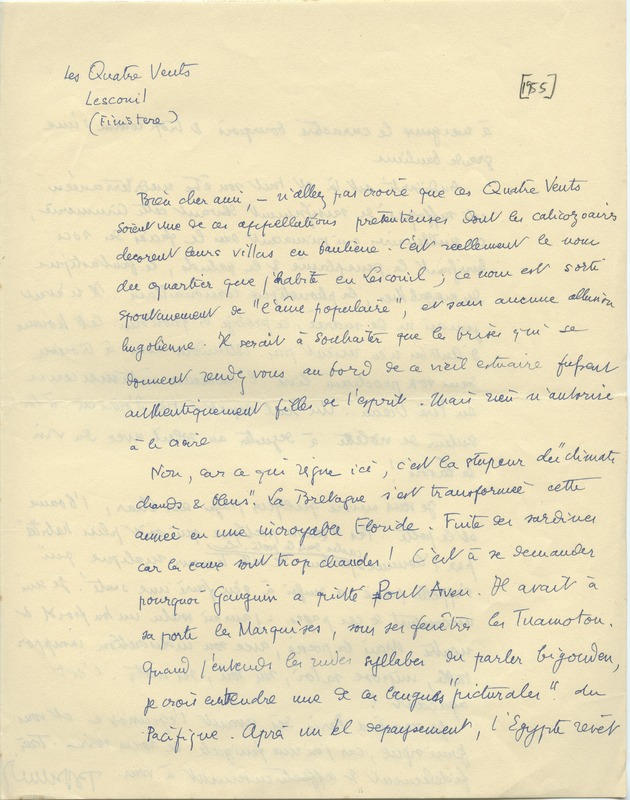 Les Quatre Vents
Lesconil
(Finistère)
[1955]
Bien cher ami, – n'allez pas croire que ces Quatre Vents
soient une de ces appellations prétentieuses dont les
décorent leurs villas en banlieue. C'est réellement le nom
du quartier que j'habite en Lesconil ; ce nom est sorti
spontanément de "l'âme populaire", et sans aucune allusion
hugolienne. Il serait à souhaiter que les brises qui se
donnent rendez vous au bord de ce vieil estuaire fussent
authentiquement filles de l'esprit. Mais rien n'autorise
à le croire
Non, car ce qui règne ici, c'est la stupeur des "climats
chauds & bleus". La Bretagne s'est transformée cette
année en une incroyable Floride. Fuite des sardines
car les eaux sont trop chaudes ! C'est à se demander
pourquoi Gauguin a quitté Pont Aven. Il avait à
sa porte les Marquises, sous ses fenêtres les Tuamotou.
Quand j'entends les rudes syllabes du parler bigouden,
je crois entendre une de ces langues "picturales" du
Pacifique. Après un tel dépaysement, l'Egypte revêt